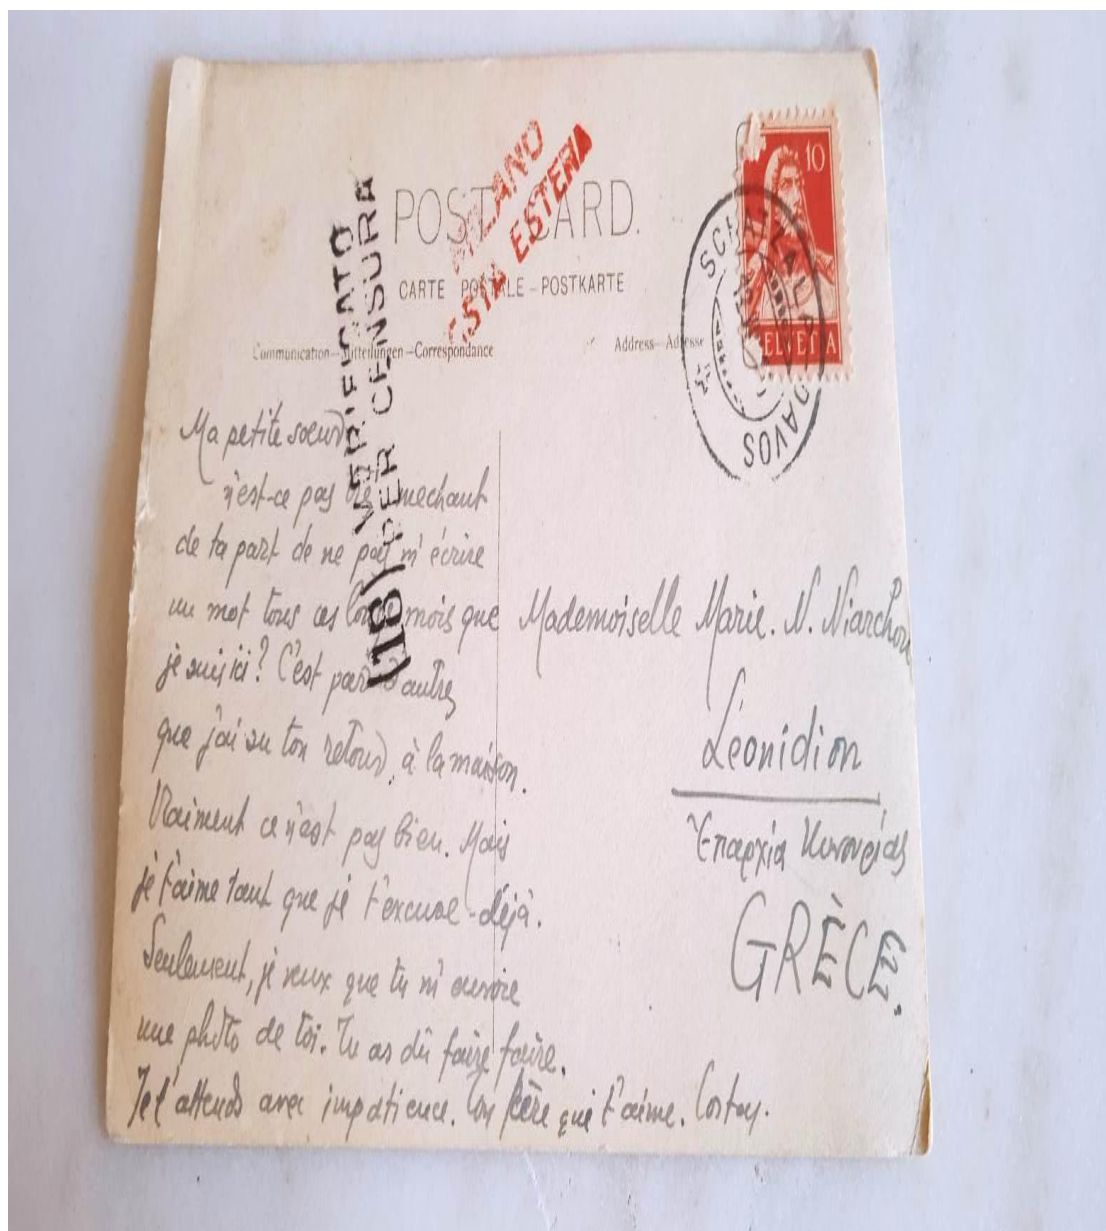 MILANO
POSTA ESTERA
POST CARD.
CARTE POSTALE – POSTKARTE
Communication–Mitteilungen–Correspondance
Address–Adresse
10
HELVETIA
DAVOS
VERIFICATO
PER CENSURA
(18)
Ma petite soeur,
n'est-ce pas très mechant
de ta part de ne pas m'écrire
un mot tous ces longs mois que
je suis ici? C'est par d'autres
que j'ai su ton retour, à la maison.
Vraiment ce n'est pas bien. Mais
je t'aime tant que je t'excuse déjà.
Seulement, je veux que tu m'envoie
une photo de toi. Tu as dû faire faire.
Je t'attends avec impatience. Ton frère qui t'aime. Costas.
Mademoiselle Marie. N. Niarchou
Léonidion
Ἐπαρχία Κυνουρίας
GRÈCE.